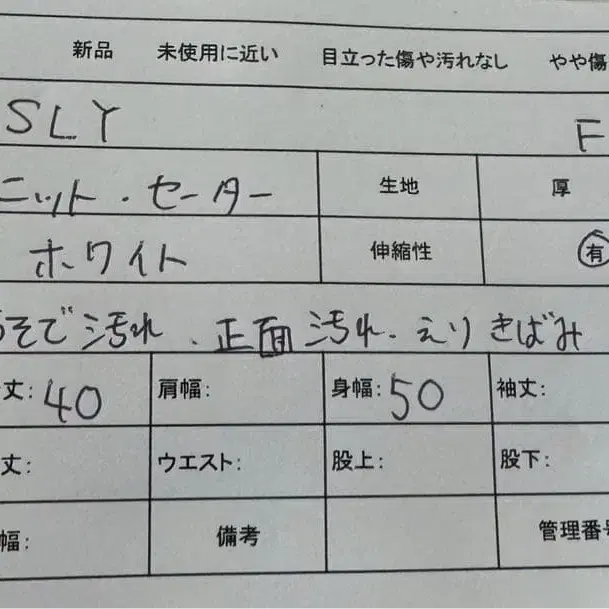 新品 未使用に近い 目立った傷や汚れなし やや傷
SLY F
ニット・セーター 生地 厚
ホワイト 伸縮性 有
そで汚れ、正面汚れ、えりきばみ
丈: 40 肩幅: 身幅: 50 袖丈:
丈: ウエスト: 股上: 股下:
幅: 備考 管理番号